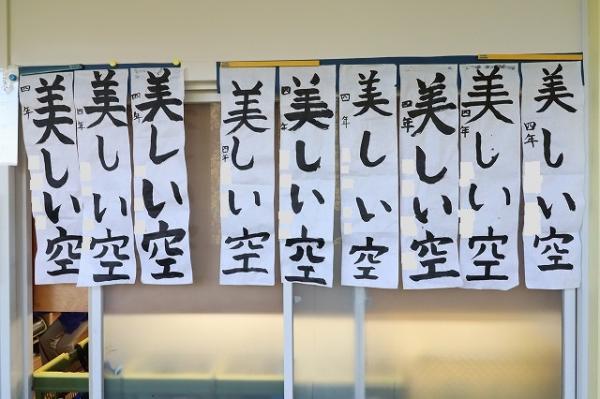 美しい空
四年
美しい空
四年
美しい空
四年
美しい空
四年
美しい空
四年
美しい空
四年
美しい空
四年
美しい空
四年
美しい空
四年